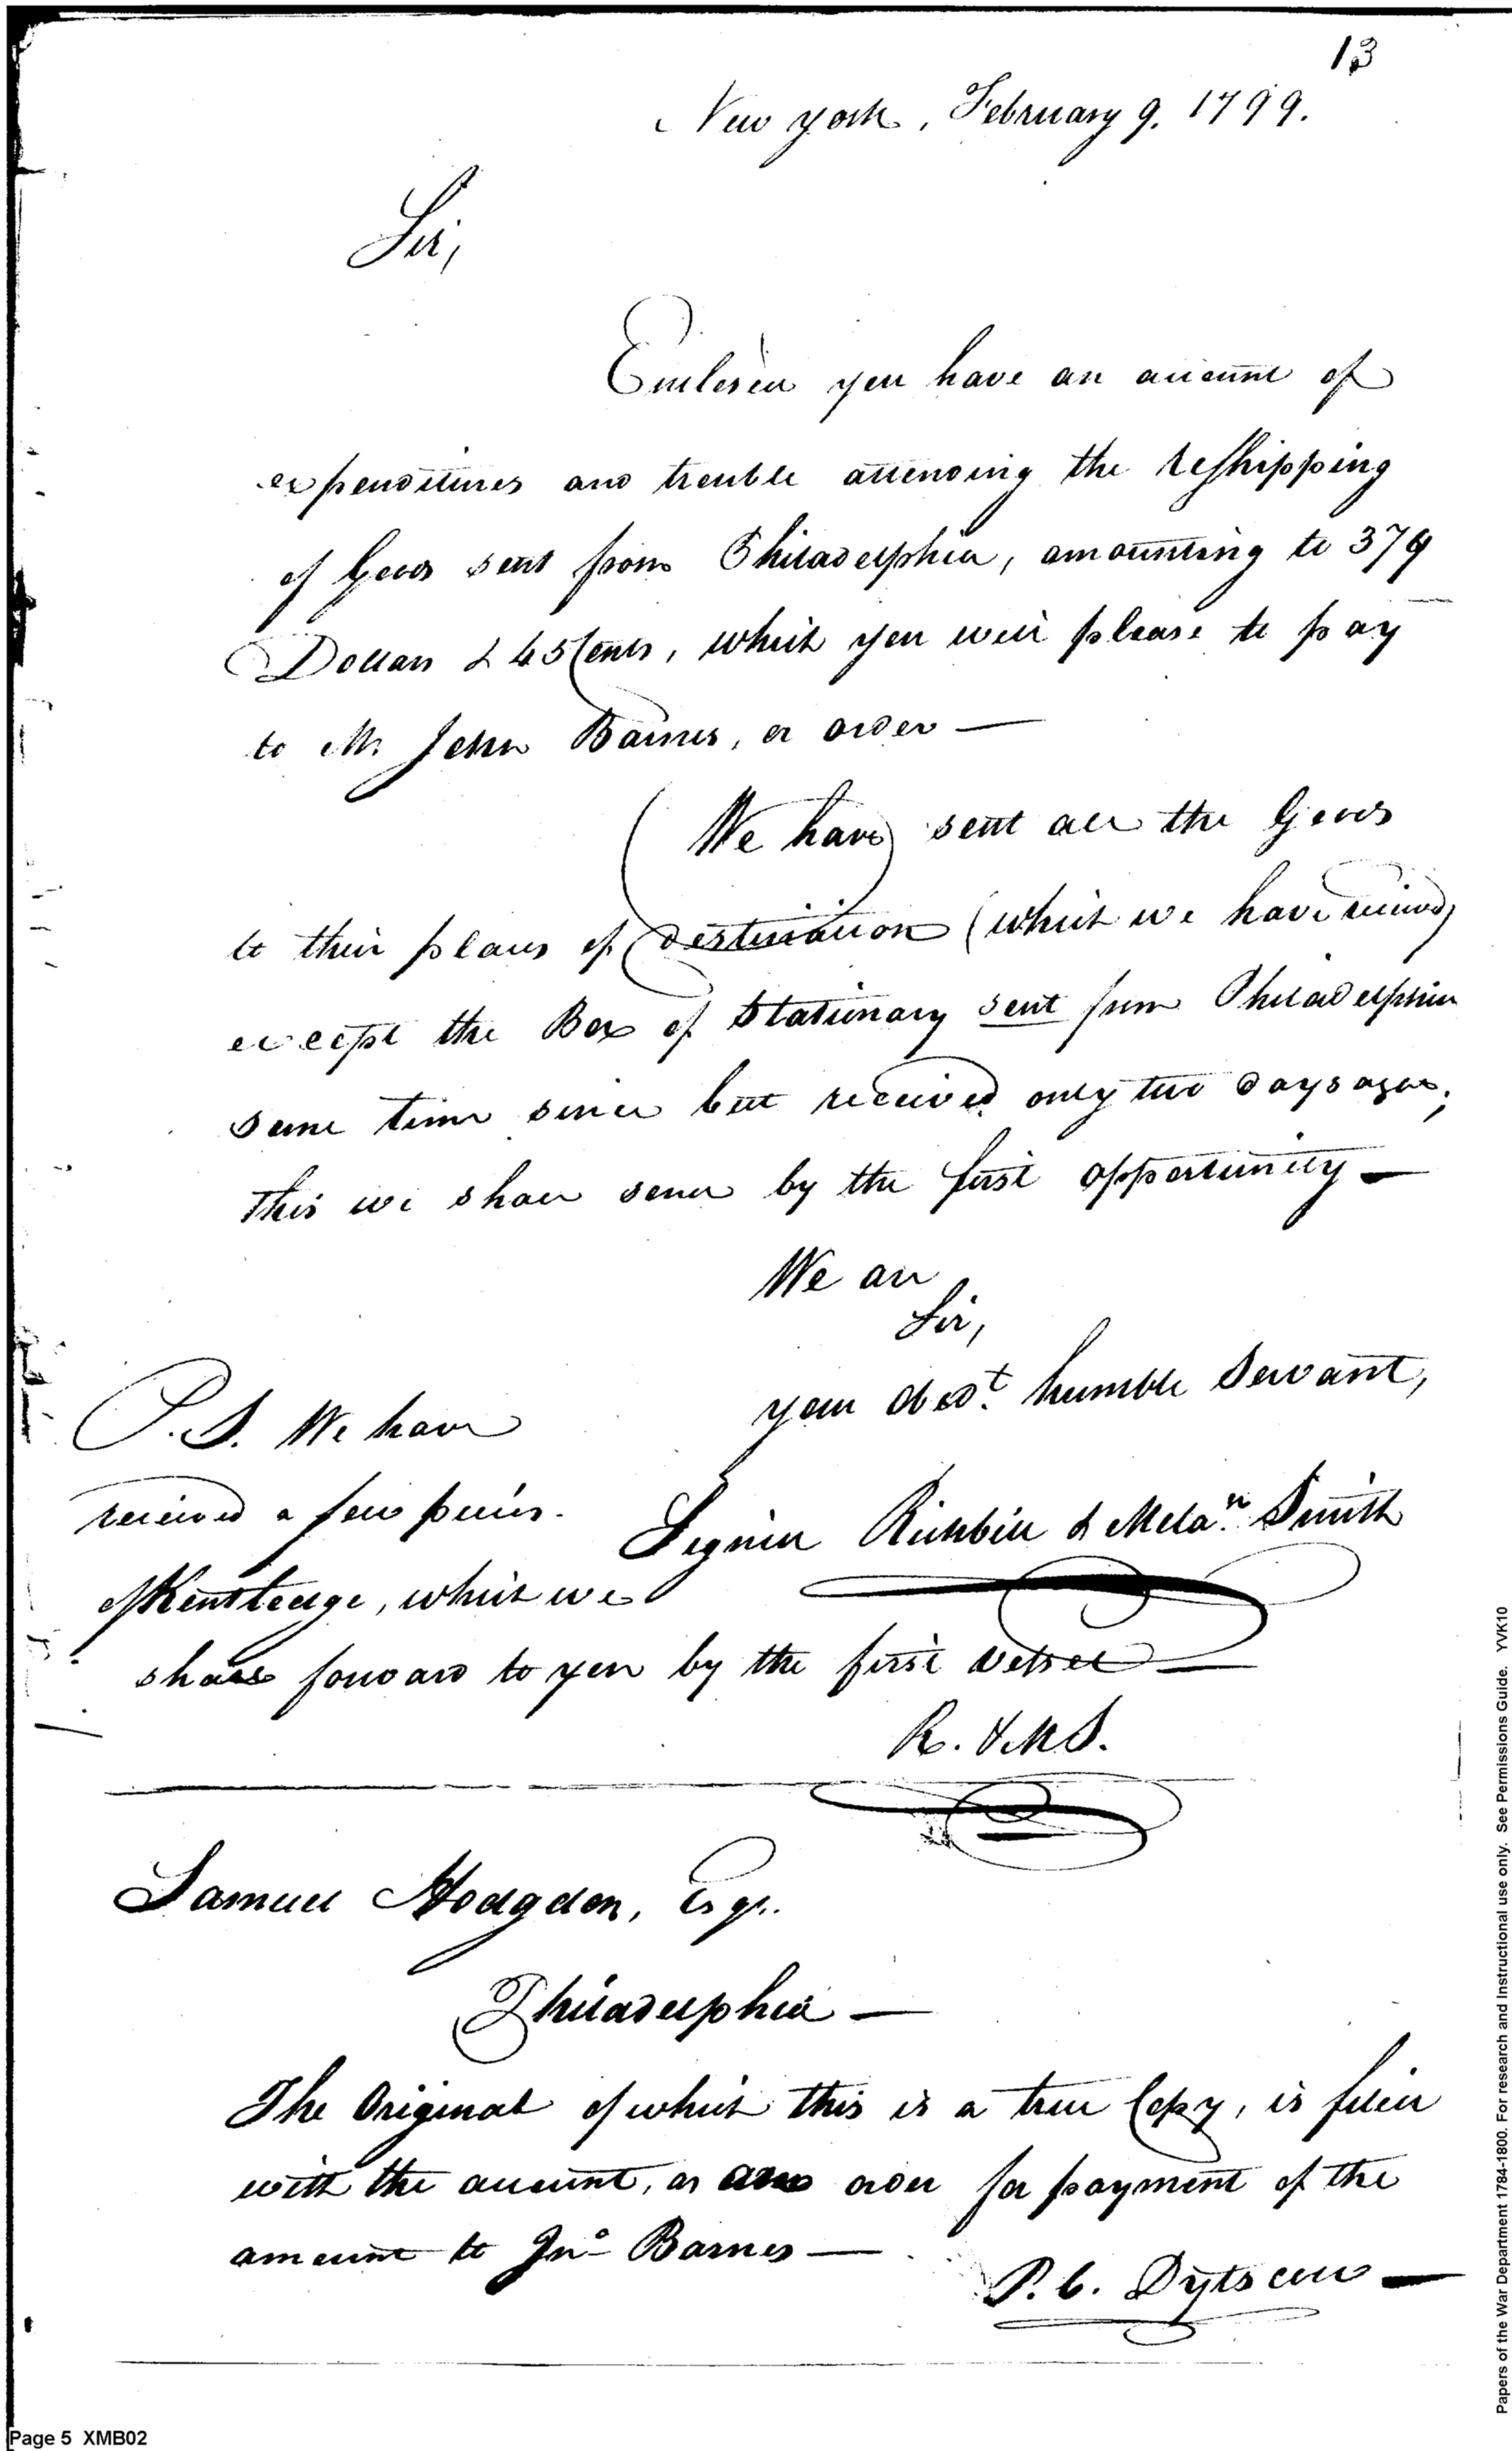 13
New York, February 9. 1799.
Sir,
Enclosed you have an account of
expenditures and trouble attending the reshipping
of Goods sent from Philadelphia, amounting to 379
Dollars & 45 Cents, which you will please to pay
to Mr. John Barnes, or order —
We have sent all the Goods
to their places of destination (which we have received)
except the Box of Stationary sent from Philadelphia
some time since but received only two days ago;
This we shall send by the first opportunity —
We are
Sir,
your obedt. humble Servant,
P.S. We have
received a few pieces
Signed Richbill & Melan. Smith
of Kentledge, which we
shall forward to you by the first vessel —
R. & M S.
Samuel Hodgdon, Esqr.
Philadelphia —
The Original of which this is a true Copy, is filed
with the account, as an order for payment of the
amount to Jno. Barnes —
P. C.
Page 5 XMB02
Papers of the War Department 1784-1800. For research and Instructional use only. See Permissions Guide. YVK10